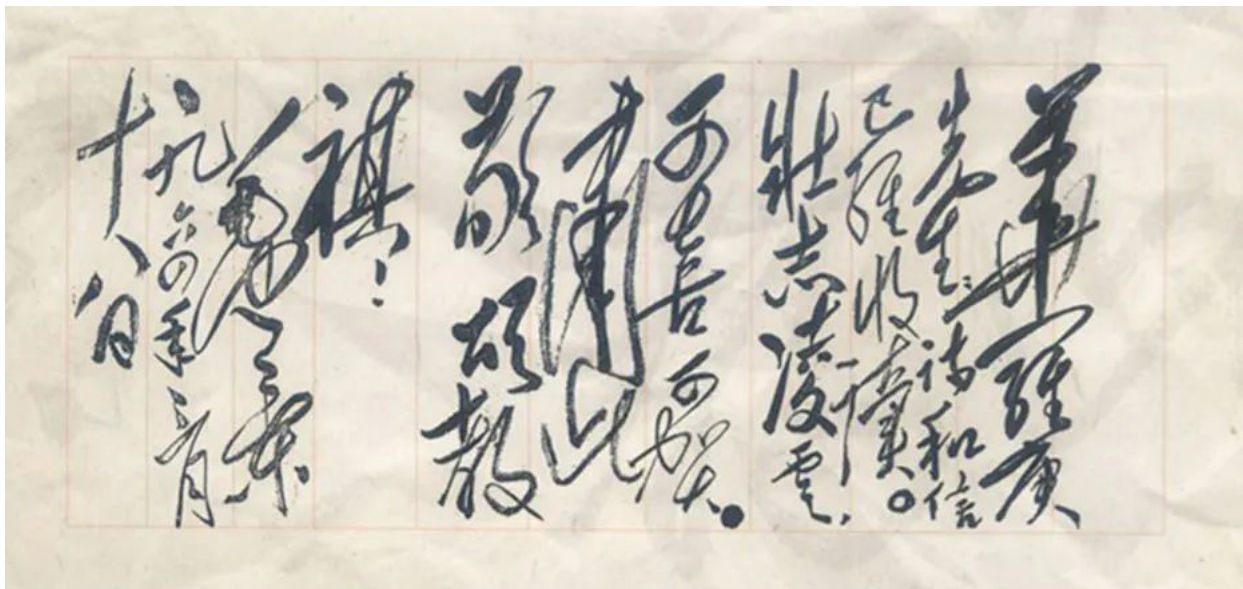 華羅庚
先生：詩和信
已經收讀。
壯志凌雲，
可喜可賀。
肅此
敬頌教
祺！
毛澤東
一九六四年三月
十八日